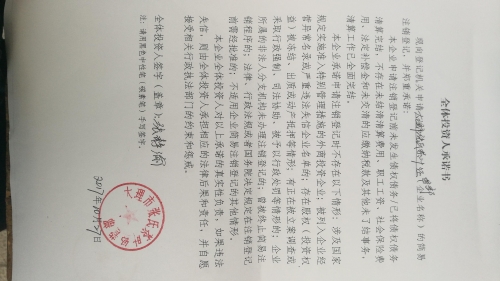 全体投资人承诺书
现向登记机关申请(企业名称)的简易
注销登记，并郑重承诺：
本企业申请注销登记前未发生债权债务/已将债权债务
清算完结，不存在未结清清算费用、职工工资、社会保险费
用、法定补偿金和未交清的应缴纳税款及其他未了结事务，
清算工作已全面完结。
本企业承诺申请注销登记时不存在以下情形：涉及国家
规定实施准入特别管理措施的外商投资企业；被列入企业经
营异常名录或严重违法失信企业名单的；存在股权（投资权
益）被冻结、出质或动产抵押等情形；有正在被立案调查或
采取行政强制、司法协助、被予以行政处罚等情形的；企业
所属的非法人分支机构未办理注销登记的；曾被终止简易注
销程序的；法律、行政法规或者国务院决定规定在注销登记
前需经批准的；不适用企业简易注销登记的其他情形。
本企业全体投资人对以上承诺的真实性负责，如果违法
失信，则由全体投资人承担相应的法律后果和责任，并自愿
接受相关行政执法部门的约束和惩戒。
全体投资人签字（盖章）：
2019年10月31日
注：请用黑色中性笔（碳素笔）手写签字。
大理市张氏